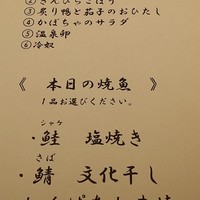 ②きんぴらごぼう
③炙り鴨と茄子のおひたし
④かぼちゃのサラダ
⑤温泉卵
⑥冷奴
《 本日の焼魚 》
1品お選びください。
・鮭 シャケ 塩焼き
・鯖 さば 文化干し